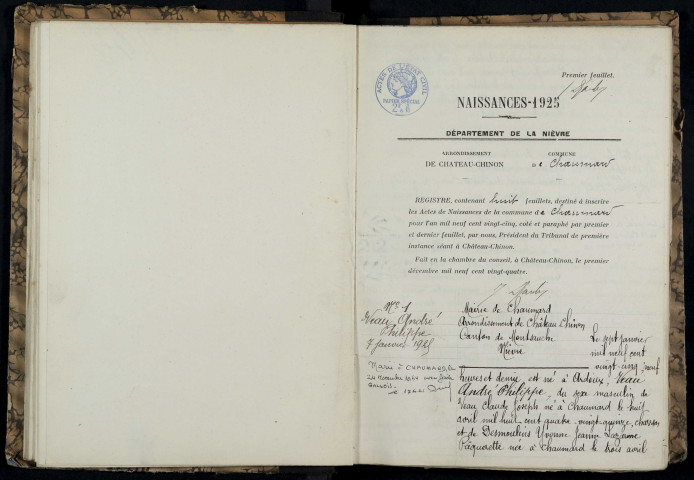 Premier feuillet.
ACTES DE L'ÉTAT CIVIL
NAISSANCES-1925
DÉPARTEMENT DE LA NIÈVRE
ARRONDISSEMENT
DE CHATEAU-CHINON
COMMUNE
de Chaumard
REGISTRE, contenant huit feuillets, destiné à inscrire
les Actes de Naissances de la commune de Chaumard
pour l'an mil neuf cent vingt-cinq, coté et paraphé par premier
et dernier feuillet, par nous, Président du Tribunal de première
instance séant à Château-Chinon.
Fait en la chambre du conseil, à Château-Chinon, le premier
décembre mil neuf cent vingt-quatre.
No 1
Veau André
Philippe
7 Janvier 1925
Marié à CHAUMARD
Mairie de Chaumard
Arrondissement de Château Chinon
Canton de Montsauche
Nièvre
Le sept janvier
mil neuf cent
vingt-cinq, neuf
heures et demie, est né à Ardoux, Veau
André Philippe, du sexe masculin de
Veau Claude Joseph né à Chaumard le huit
avril mil huit cent quatre-vingt-quinze,
et de Desmoulins Yvonne Jeanne Lazarine
Pâquerette née à Chaumard le trois avril